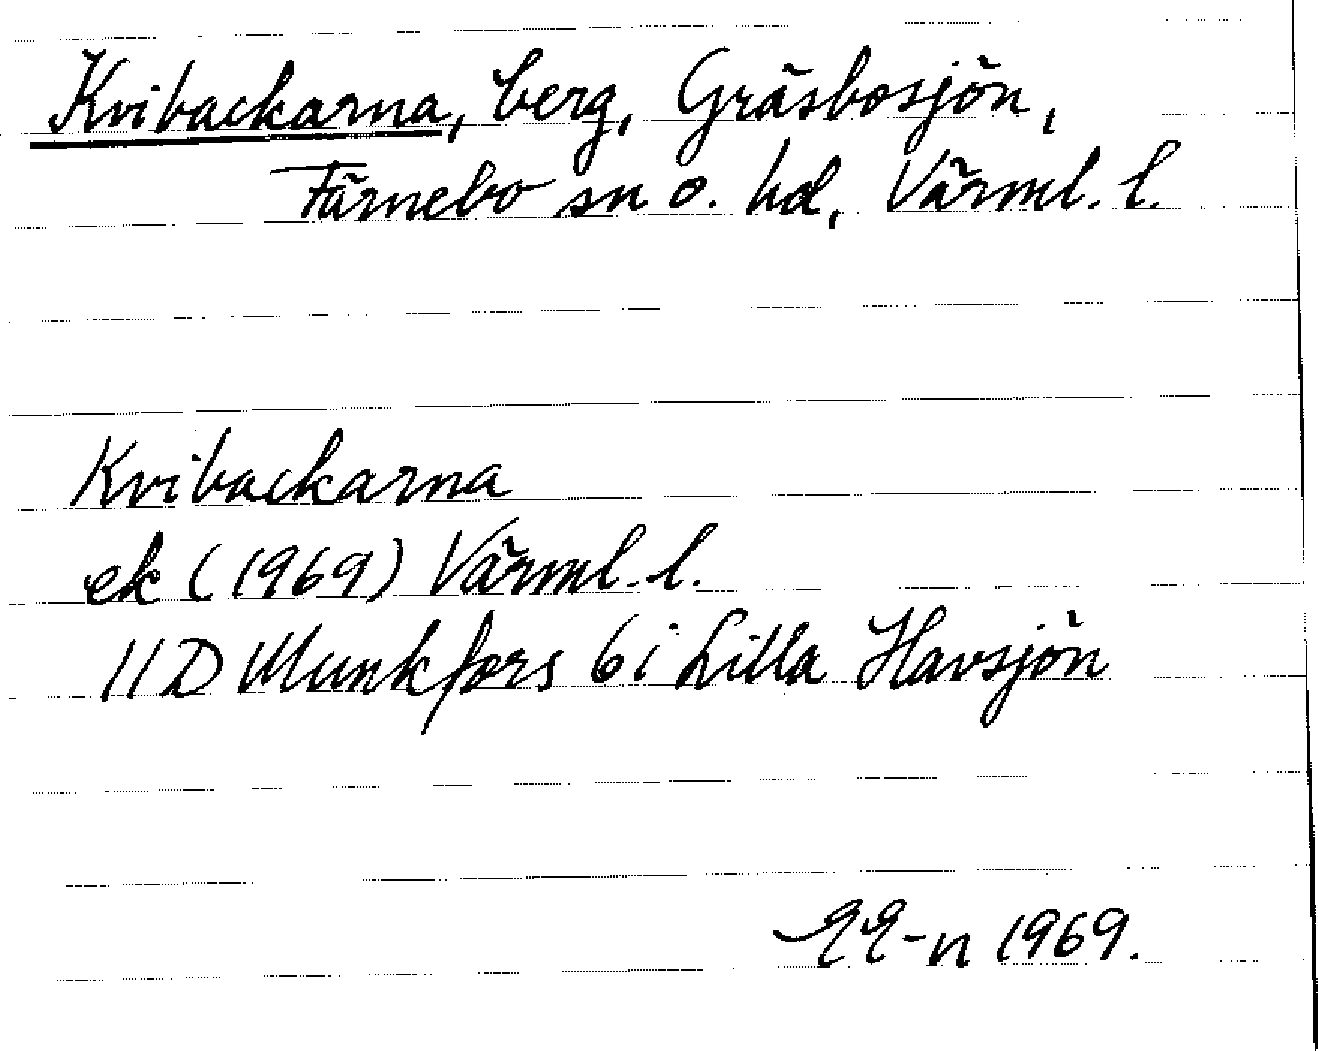 Kvibackarna, berg, Gräsbosjön,
Färnebo sn o. hd, Värml. l.
Kvibackarna
ek (1969) Värml. l.
11D Munkfors 6i Lilla Havsjön
1969.